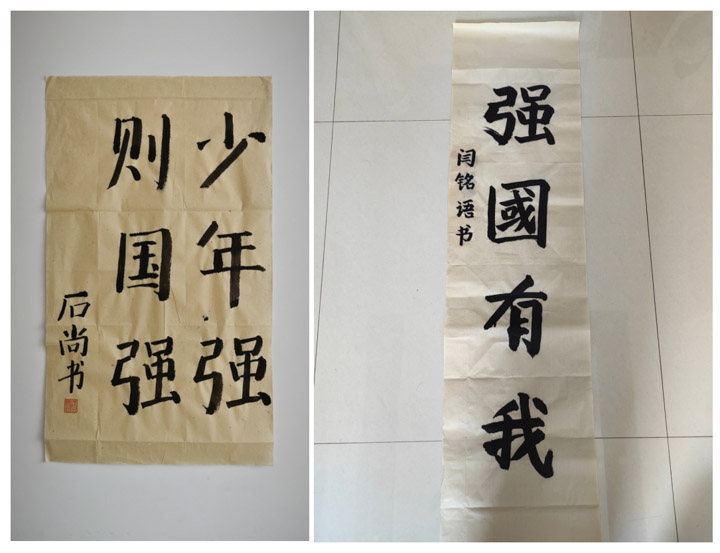 少年强
则国强
石尚书
强國有我
闫铭语书